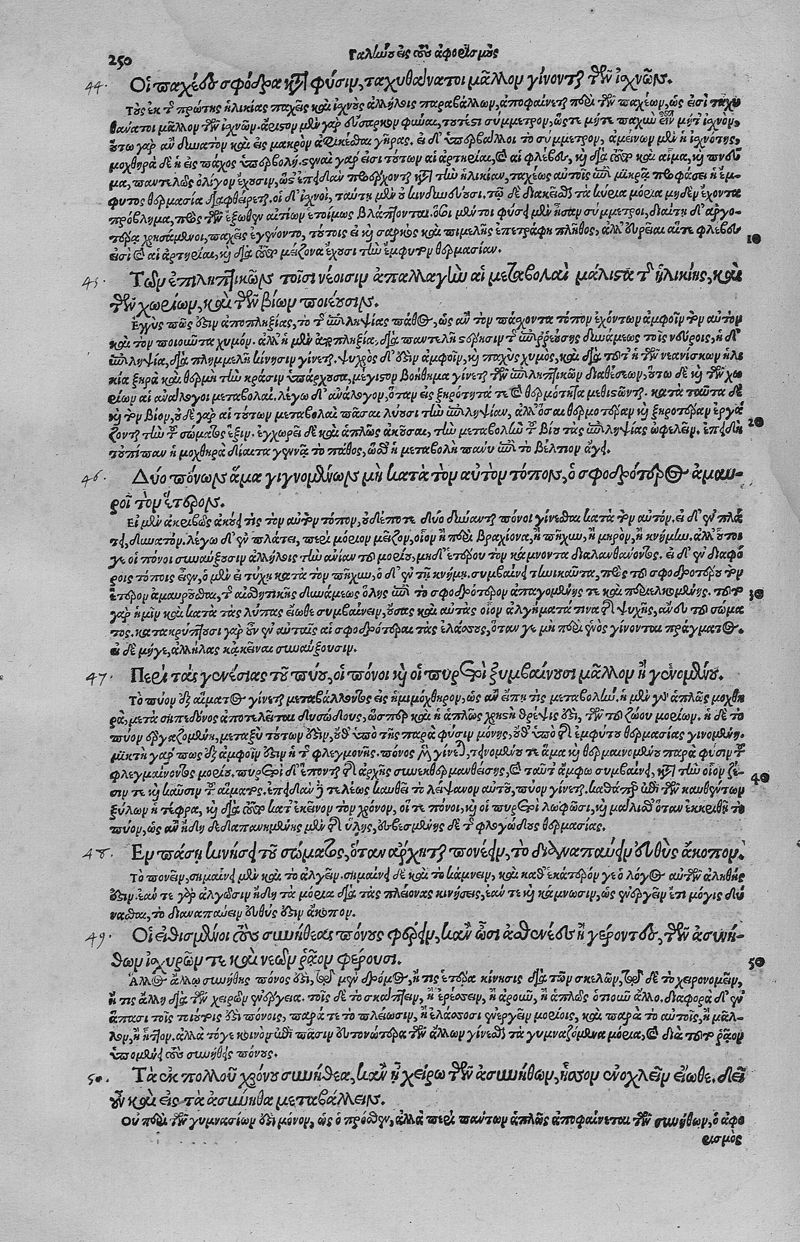 250 Γαλίωου εἰς τοὺς ἀφορισμοὺς
44. Οἱ παχέες σφόδρα κατὰ φύσιν, ταχυθάνατοι μᾶλλον γίνονται τῶν ἰσχνῶν.
Τοὺς ἐκ τῆς πρώτης ἡλικίας παχεῖς καὶ ἰσχνοὺς ἀλλήλοις παραβάλλων, ἀποφαίνεται περὶ τῶν παχέων, ὡς εἰσὶ ταχυ
θάνατοι μᾶλλον τῶν ἰσχνῶν. ἄριστον μὲν γὰρ εὔσαρκον φῦναι, τουτέστι σύμμετρον, ὥστε μήτε παχὺν εἶναι μήτ᾽ ἰσχνὸν,
οὕτω γὰρ ἂν δύναιτο καὶ εἰς μακρὸν ἀφικέσθαι γῆρας. εἰ δ᾽ ὑπερβάλλοι τὸ σύμμετρον, ἀμείνων μὲν ἡ ἰσχνότης,
μοχθηρὰ δὲ ἡ εἰς πάχος ὑπερβολή. στεναὶ γάρ εἰσι τούτων αἱ ἀρτηρίαι, καὶ αἱ φλέβες, καὶ διὰ τοῦτο καὶ αἷμα, καὶ πνεῦ
μα, παντελῶς ὀλίγον ἔχουσιν, ὥστ᾽ ἐπειδὰν προέρχονται κατὰ τὴν ἡλικίαν, ταχέως αὐτοῖς ἐπὶ μικρᾷ προφάσει ἡ ἔμ-
φυτος θερμασία διαφθείρεται. οἱ δ᾽ ἰσχνοὶ, ταύτῃ μὲν οὐ κινδυνεύουσι. τῷ δὲ διακεῖσθαι τὰ κύρια μόρια μηδὲν ἔχοντα
πρόβλημα, πρὸς τῶν ἔξωθεν αἰτίων ἑτοίμως βλάπτονται. ὅσοι μέντοι φύσει μὲν ἦσαν σύμμετροι, διαίτῃ δ᾽ ἀργο-
τέρᾳ χρησάμενοι, παχεῖς ἐγένοντο, τούτοις εἰ καὶ σαρκὸς καὶ πιμελῆς ἐπετράφη πλῆθος, ἀλλ᾽ εὐρεῖαι αἵτε φλέβες
εἰσὶ καὶ αἱ ἀρτηρίαι, καὶ διὰ τοῦτο μείζονα ἔχουσι τὴν ἔμφυτον θερμασίαν. 10
45. Τῶν ἐπιληπτικῶν τοῖσι νέοισιν ἀπαλλαγὴν αἱ μεταβολαὶ μάλιστα τῆς ἡλικίης, καὶ
τῶν χωρίων, καὶ τῶν βίων ποιέουσιν.
Ἐγγύς πως ἐστὶν ἀποπληξίας, τὸ τῆς ἐπιληψίας πάθος, ὡς ἂν τὸν πάσχοντα τόπον ἐχόντων ἀμφοῖν τὸν αὐτὸν
καὶ τὸν ποιοῦντα χυμόν. ἀλλ᾽ ἡ μὲν ἀποπληξία, διὰ παντελῆ στέρησιν τῆς ἐπιρρεούσης δυνάμεως τοῖς νεύροις, ἡ δ᾽
ἐπιληψία, διὰ πλημμελῆ κίνησιν γίνεται. ψυχρὸς δ᾽ ἐστὶν ἀμφοῖν, καὶ παχὺς χυμὸς, καὶ διὰ τοῦτ᾽ ἡ τῶν νεανίσκων ἡλι
κία ξηρὰ καὶ θερμὴ τὴν κρᾶσιν ὑπάρχουσα, μέγιστον βοήθημα γίνεται τῶν ἐπιληπτικῶν διαθέσεων, οὕτω δὲ καὶ τῶν χω
ρίων αἱ ἀνάλογοι μεταβολαί. λέγω δ᾽ ἀνάλογον, ὅταν εἰς ξηρότητά τε καὶ θερμότητα μεθιστῶνται. κατὰ ταῦτα δὲ
καὶ τὸν βίον, οὐδὲ γὰρ αἱ τούτων μεταβολαὶ πᾶσαι λύουσι τὴν ἐπιληψίαν, ἀλλ᾽ ὅσαι θερμοτέραν καὶ ξηροτέραν ἐργά
ζονται τὴν τοῦ σώματος ἕξιν. ἐγχωρεῖ δὲ καὶ ἁπλῶς ἀκοῦσαι, τὴν μεταβολὴν τοῦ βίου τὰς ἐπιληψίας ὠφελεῖν. ἐπειδὴ 20
τοὐπίπαν ἡ μοχθηρὰ δίαιτα γεννᾷ τὸ πάθος, ὥσθ᾽ ἡ μεταβολὴ πᾶσιν ἐπὶ τὸ βέλτιον ἄγει.
46. Δύο πόνων ἅμα γιγνομένων μὴ κατὰ τὸν αὐτὸν τόπον, ὁ σφοδρότερος ἀμαυ-
ροῖ τὸν ἕτερον.
Εἰ μὲν ἀκριβῶς ἀκούει τις τὸν αὐτὸν τόπον, οὐδέποτε δύο δύνανται πόνοι γίνεσθαι κατὰ τὸν αὐτόν. εἰ δ᾽ ἐν πλά
τει, δυνατόν. λέγω δ᾽ ἐν πλάτει, περὶ μόριον μεῖζον, οἷον ἢ περὶ βραχίονα, ἢ πῆχυν, ἢ μηρὸν, ἢ κνήμην. ἀλλ᾽ οὗτοί
γε οἱ πόνοι συναύξουσιν ἀλλήλοις τὴν ἀνίαν τοῦ μορίου, μηδ᾽ ἑτέρου τὸν κάμνοντα διαλανθάνοντος. εἰ δ᾽ ἐν διαφό
ροις τόποις εἶεν, ὁ μὲν εἰ τύχῃ κατὰ τὸν πῆχυν, ὁ δ᾽ ἐν τῇ κνήμῃ. συμβαίνει τηνικαῦτα, πρὸς τοῦ σφοδροτέρου τὸν
ἕτερον ἀμαυροῦσθαι, τῆς αἰσθητικῆς δυνάμεως ὅλης ἐπὶ τὸ σφοδρότερον ἀπαγομένης τε καὶ περιελκομένης. τοῦτο 30
γὰρ ἡμῖν καὶ κατὰ τὰς λύπας εἴωθε συμβαίνειν, οὔσας καὶ αὐτὰς οἷον ἀλγήματά τινα τῆς ψυχῆς, ἄνευ τοῦ σώμα
τος. κατακρύπτουσι γὰρ ἐν αὐταῖς αἱ σφοδρότεραι τὰς ἐλάσσους, ὅταν γε μὴ περὶ ἑνὸς γίνονται πράγματος.
εἰ δὲ μήγε, ἀλλήλας κἀκεῖναι συναύξουσιν.
47. Περὶ τὰς γενέσιας τοῦ πύου, οἱ πόνοι καὶ οἱ πυρετοὶ ξυμβαίνουσι μᾶλλον ἢ γενομένου.
Τὸ πύον ἐξ αἵματος γίνεται μεταβάλλοντος εἰς ἡμιμόχθηρον, ὡς ἂν εἴπῃ τις μεταβολήν. ἡ μὲν γὰρ ἁπλῶς μοχθη
ρὰ, μετὰ σηπεδόνος ἀποτελεῖται δυσώδους, ὥσπερ καὶ ἡ ἁπλῶς χρηστὴ θρέψις ἐστὶ, τῶν τοῦ ζώου μορίων. ἡ δὲ τὸ
πύον ἐργαζομένη, μεταξὺ τούτων ἐστὶν, οὔθ᾽ ὑπὸ τῆς παρὰ φύσιν μόνης, οὔθ᾽ ὑπὸ τῆς ἐμφύτου θερμασίας γινομένη.
μικτὴ γάρ πως ἐξ ἀμφοῖν ἐστὶν ἡ τῆς φλεγμονῆς. πόνος μὲν γίνεται, τεινομένου τε ἅμα καὶ θερμαινομένου παρὰ φύσιν τοῦ
φλεγμαίνοντος μορίου, πυρετοὶ δ᾽ ἕπονται τῆς ἀρχῆς συνεκθερμανθείσης, καὶ ταῦτ᾽ ἄμφω συμβαίνει, κατὰ τὴν οἷον ζέ-
σιν τε καὶ καῦσιν τοῦ αἵματος. ἐπειδὰν δὲ τελέως καυθὲν τὸ λείψανον αὐτοῦ, πύον γίνεται. καθάπερ ἐπὶ τῶν καυθέντων 40
ξύλων ἡ τέφρα, καὶ διὰ τοῦτο κατ᾽ ἐκεῖνον τὸν χρόνον, οἵ τε πόνοι, καὶ οἱ πυρετοὶ λωφῶσι, καὶ μάλισθ᾽ ὅταν ἐκκριθῇ τὸ
πύον, ὡς ἂν ἤδη δεδαπανημένης μὲν τῆς ὕλης, ἐσβεσμένης δὲ τῆς φλογώδους θερμασίας.
48. Ἐν πάσῃ κινήσει τοῦ σώματος, ὅταν ἄρχηται πονέειν, τὸ διαναπαύειν εὐθὺς ἄκοπον.
Τὸ πονεῖν, σημαίνει μὲν καὶ τὸ ἀλγεῖν. σημαίνει δὲ καὶ τὸ κάμνειν, καὶ καθ᾽ ἑκάτερόν γε ὁ λόγος αὐτῶν ἀληθής
ἐστιν. ἐάν τε γὰρ ἀλγῶσιν ἤδη τὰ μόρια διὰ τὰς πλείονας κινήσεις, ἐάν τε καὶ κάμνωσιν, ὡς ἐνεργεῖν ἔτι μόγις δύ
νασθαι, τὸ διαναπαύειν εὐθύς ἐστιν ἄκοπον.
49. Οἱ εἰθισμένοι τοὺς συνήθεας πόνους φέρειν, κἂν ὦσι ἀσθενέες ἢ γέροντες, τῶν ἀσυνή-
θων ἰσχυρῶν τε καὶ νέων ῥᾷον φέρουσι.
Ἄλλος ἄλλῳ συνήθης πόνος ἐστὶ, τῷ μὲν δρόμος, ἤ τις ἑτέρα κίνησις διὰ τῶν σκελῶν, τῷ δὲ τὸ χειρονομεῖν, 50
ἤ τις ἄλλη διὰ τῶν χειρῶν ἐνέργεια. τοῖς δὲ τὸ σκάπτειν, ἢ ἐρέσσειν, ἢ ἀροῦν, ἢ ἁπλῶς ὁποιοῦν ἄλλο, διαφορὰ δ᾽ ἐν
ἅπασι τοῖς τοιούτοις ἐστὶ πόνοις, παρά τε τὸ πλείοσιν, ἢ ἐλάσσοσι ἐνεργεῖν μορίοις, καὶ παρὰ τὸ αὐτοῖς, ἢ μᾶλ-
λον, ἢ ἧττον. ἀλλὰ τό γε κοινὸν ἐπὶ πᾶσιν εὐτονώτερα τῶν ἄλλων γίνεσθαι τὰ γυμναζόμενα μόρια, καὶ διὰ τοῦτο ῥᾷον
ὑπομένειν τοὺς συνήθεις πόνους.
50. Τὰ ἐκ πολλοῦ χρόνου συνήθεα, κἂν ᾖ χείρω τῶν ἀσυνήθων, ἧσσον ἐνοχλεῖν εἴωθε. δεῖ
οὖν καὶ εἰς τὰ ἀσυνήθεα μεταβάλλειν.
Οὐ περὶ τῶν γυμνασίων ἐστὶ μόνον, ὡς ὁ πρόσθεν, ἀλλὰ περὶ πάντων ἁπλῶς ἀποφαίνεται τῶν συνήθων, ὁ ἀφο
ρισμὸς